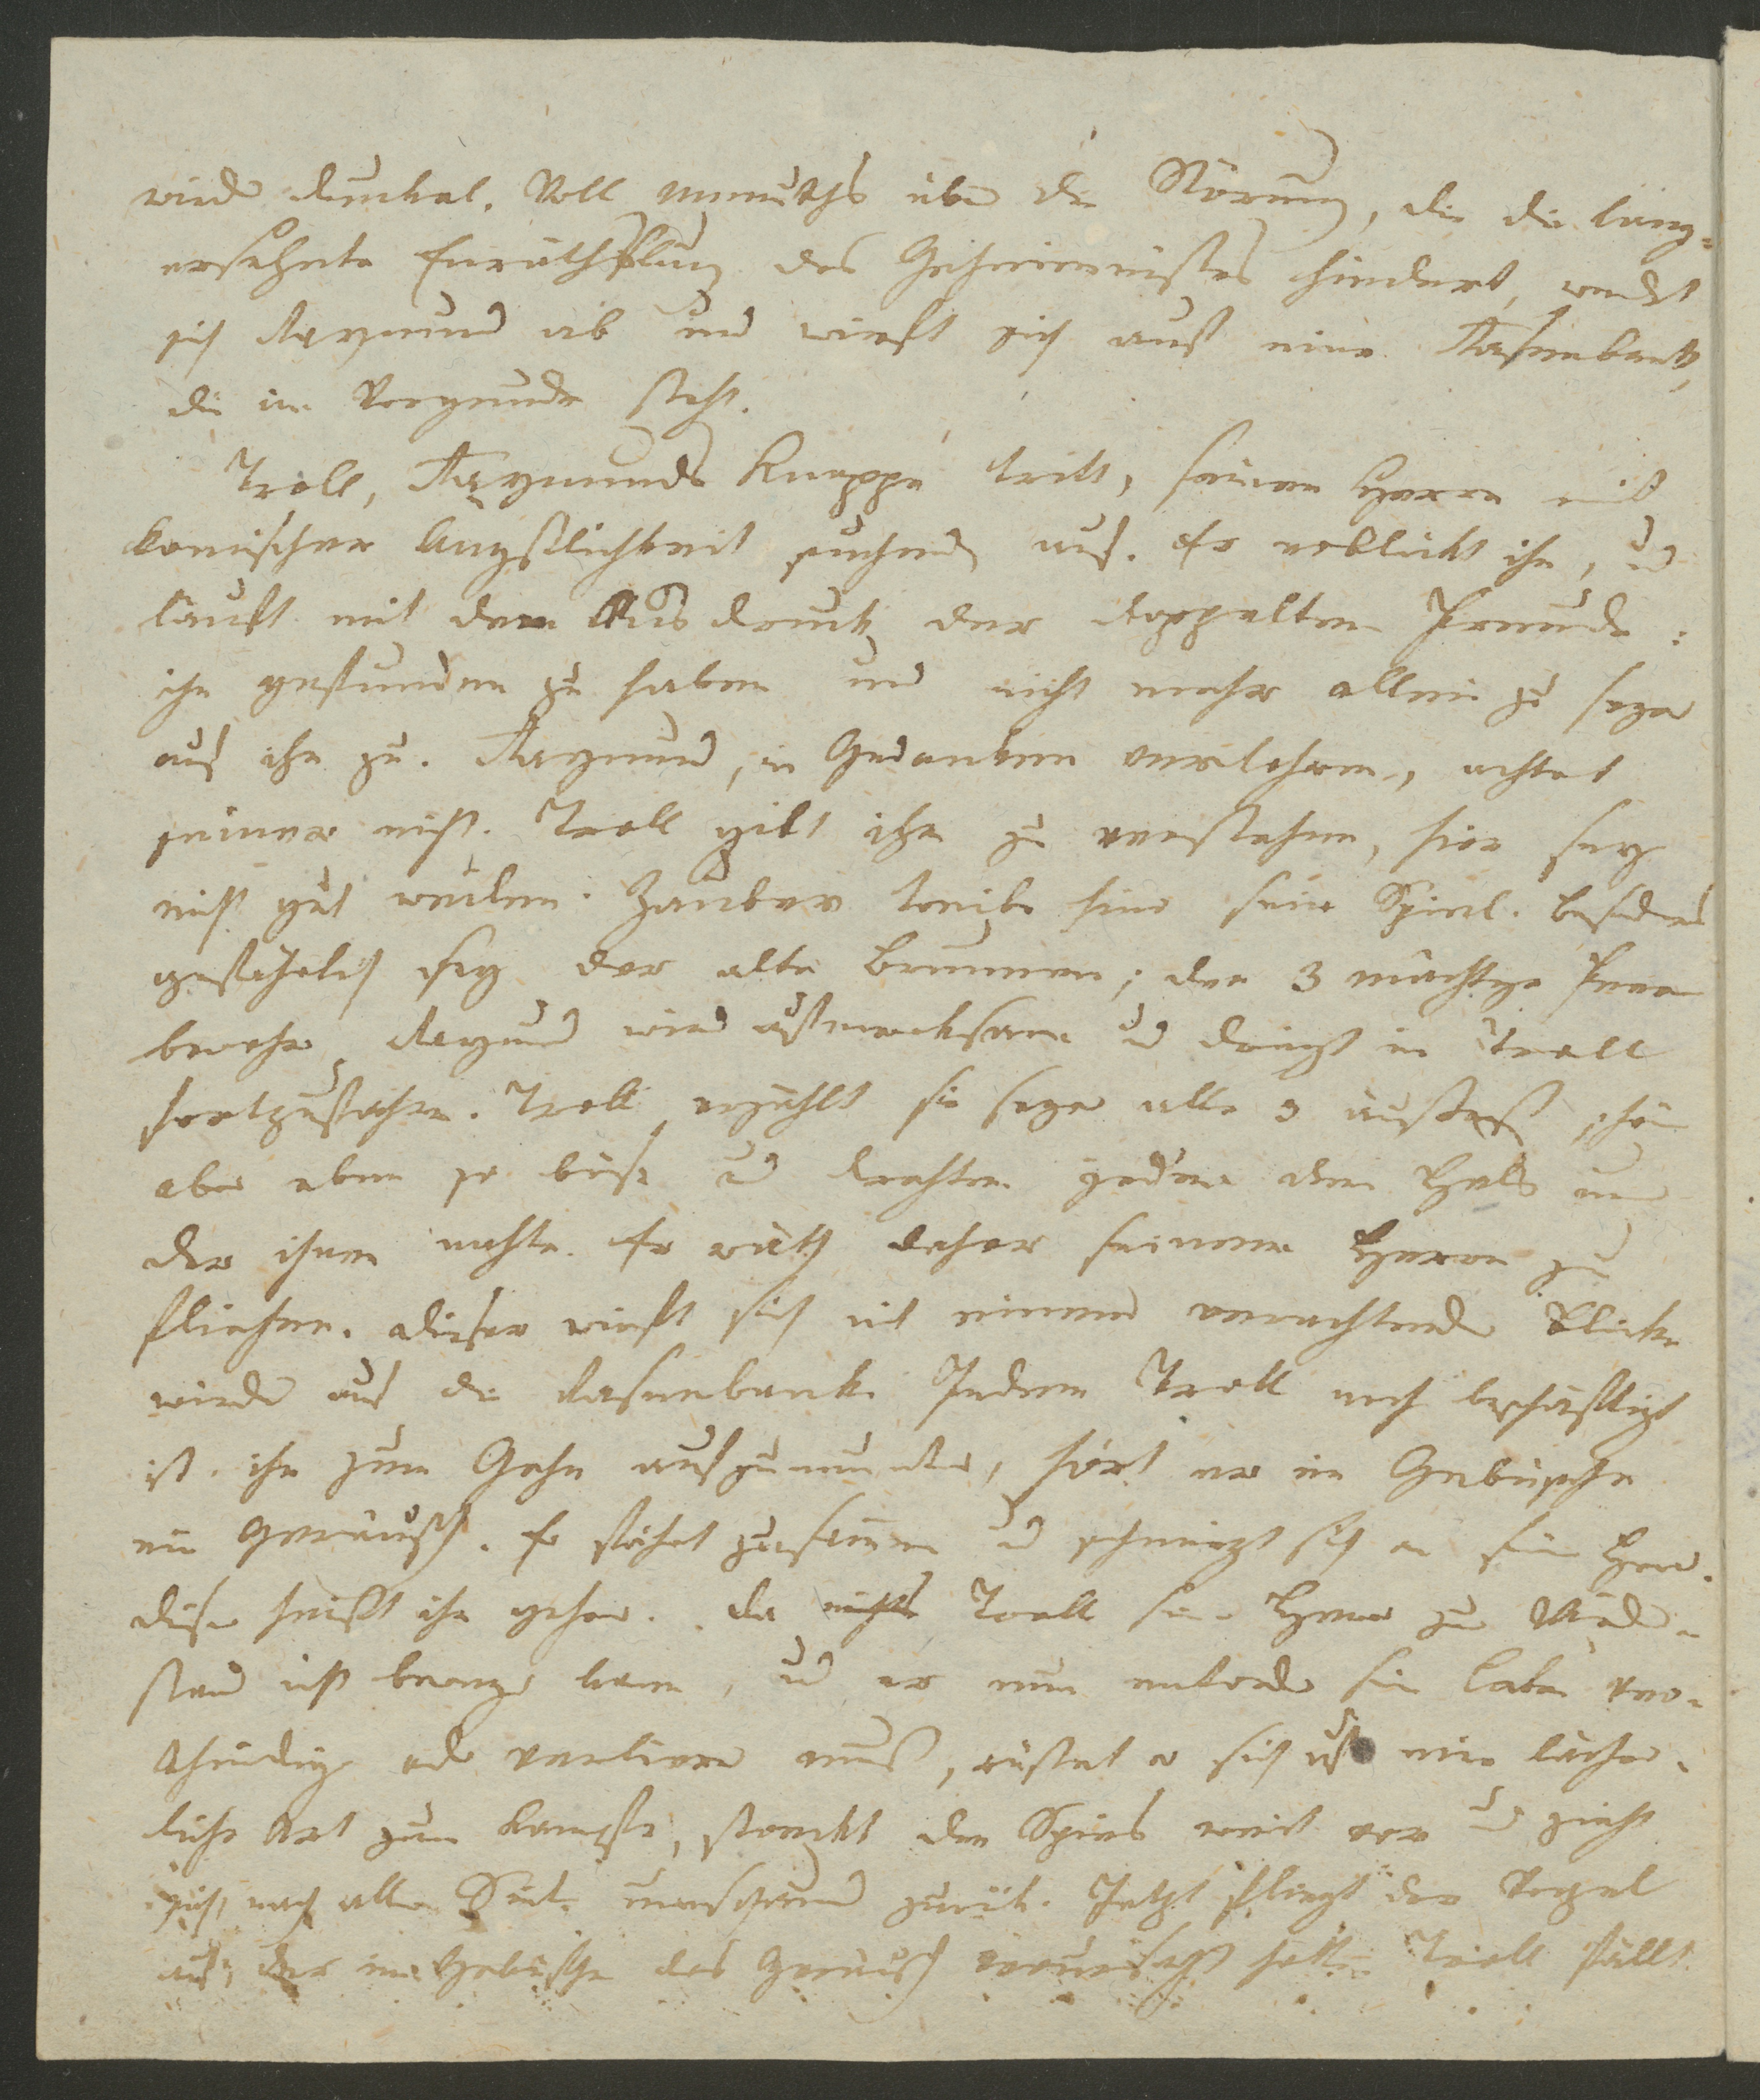 wieder dunkel. Voll Unmuths über die Störung, die die lang-
ersehnte Enräthslung des Geheimnißes hindert, wendet
sich Raymund ab und wirft sich auf eine Rasenbank,
die im Vorgrunde steht.
Troll, Raymunds Knappe tritt, seinen Herrn mit
komischer Ängstlichkeit suchend auf. Er erblickt ihn, und
lauft mit dem Ausdruck der doppelten Freude:
ihn gefunden zu haben und nicht mehr allein zu seyn
auf ihn zu. Raymund, in Gedanken verlohren, achtet
seiner nicht. Troll gibt ihm zu verstehen, hier sey
nicht gut weilen. Zauber treibe hier sein Spiel. Besonders
gefährlich sey der alte Brunnen; den 3 mächtige Feen
bewohn. Raymund wird aufmerksam und dringt in Troll
fortzufahren. Troll erzählt sie seyen alle 3 äußerst schön
aber eben so böse und drehten jedem den Hals um
der ihnen nahte. Er räth daher seinem Herrn zu
fliehen. Dieser wirft sich mit einem verachtenden Blicke
wieder auf die Rasenbank. Indem Troll noch beschäftigt
ist ihn zum Gehn aufzumuntern, hört er im Gebüsche
ein Geräusch. Er fährt zusammen und schmiegt sich an sein Herrn.
Dieser heißt ihn gehen. Da Troll sein Herrn zu Wieder-
stand nicht bewegen kann, und er nun entweder sein Leben ver-
theidigen oder verlieren muß, rüstet er sich auf eine lächer-
liche Art zum Kampfe, streckt den Spies weit vor und zieht
sich nach allen Seiten umschauend zurück. Jetzt fliegt der Vogel
auf, der im Gebüsche das Geräusch verursacht hatte. Troll fällt